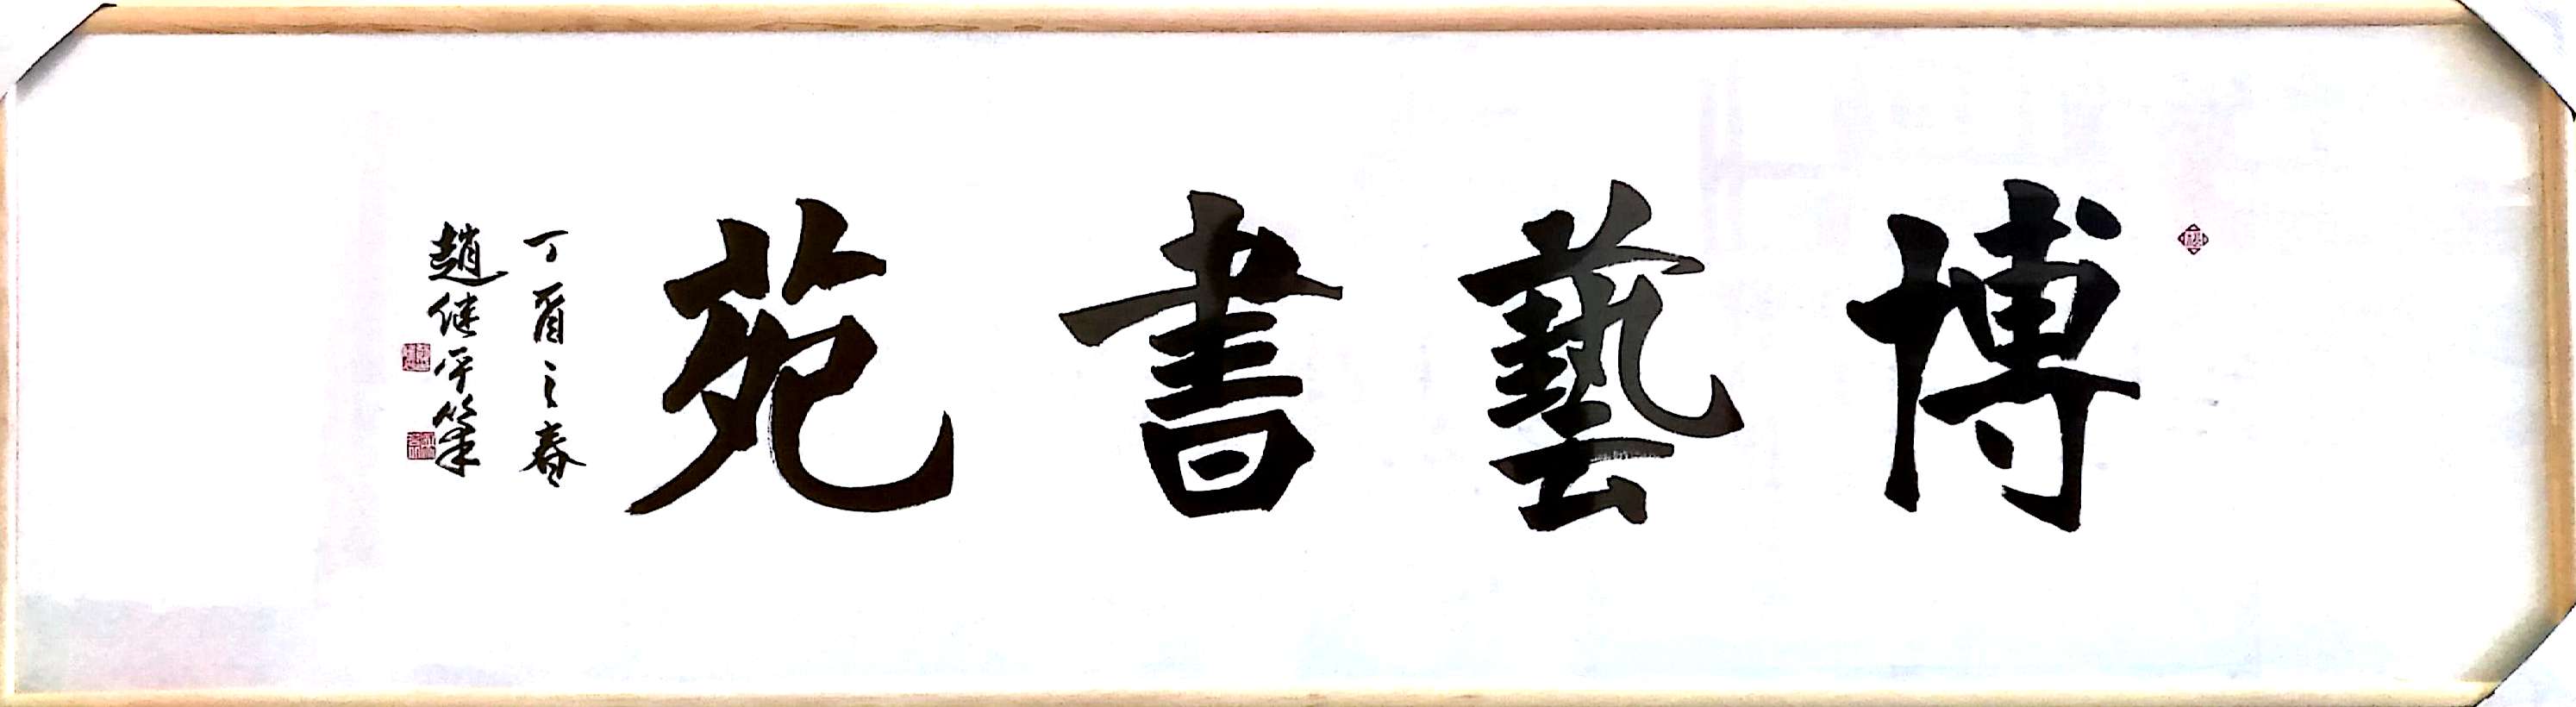 博藝書苑
丁酉之春
趙継平筆